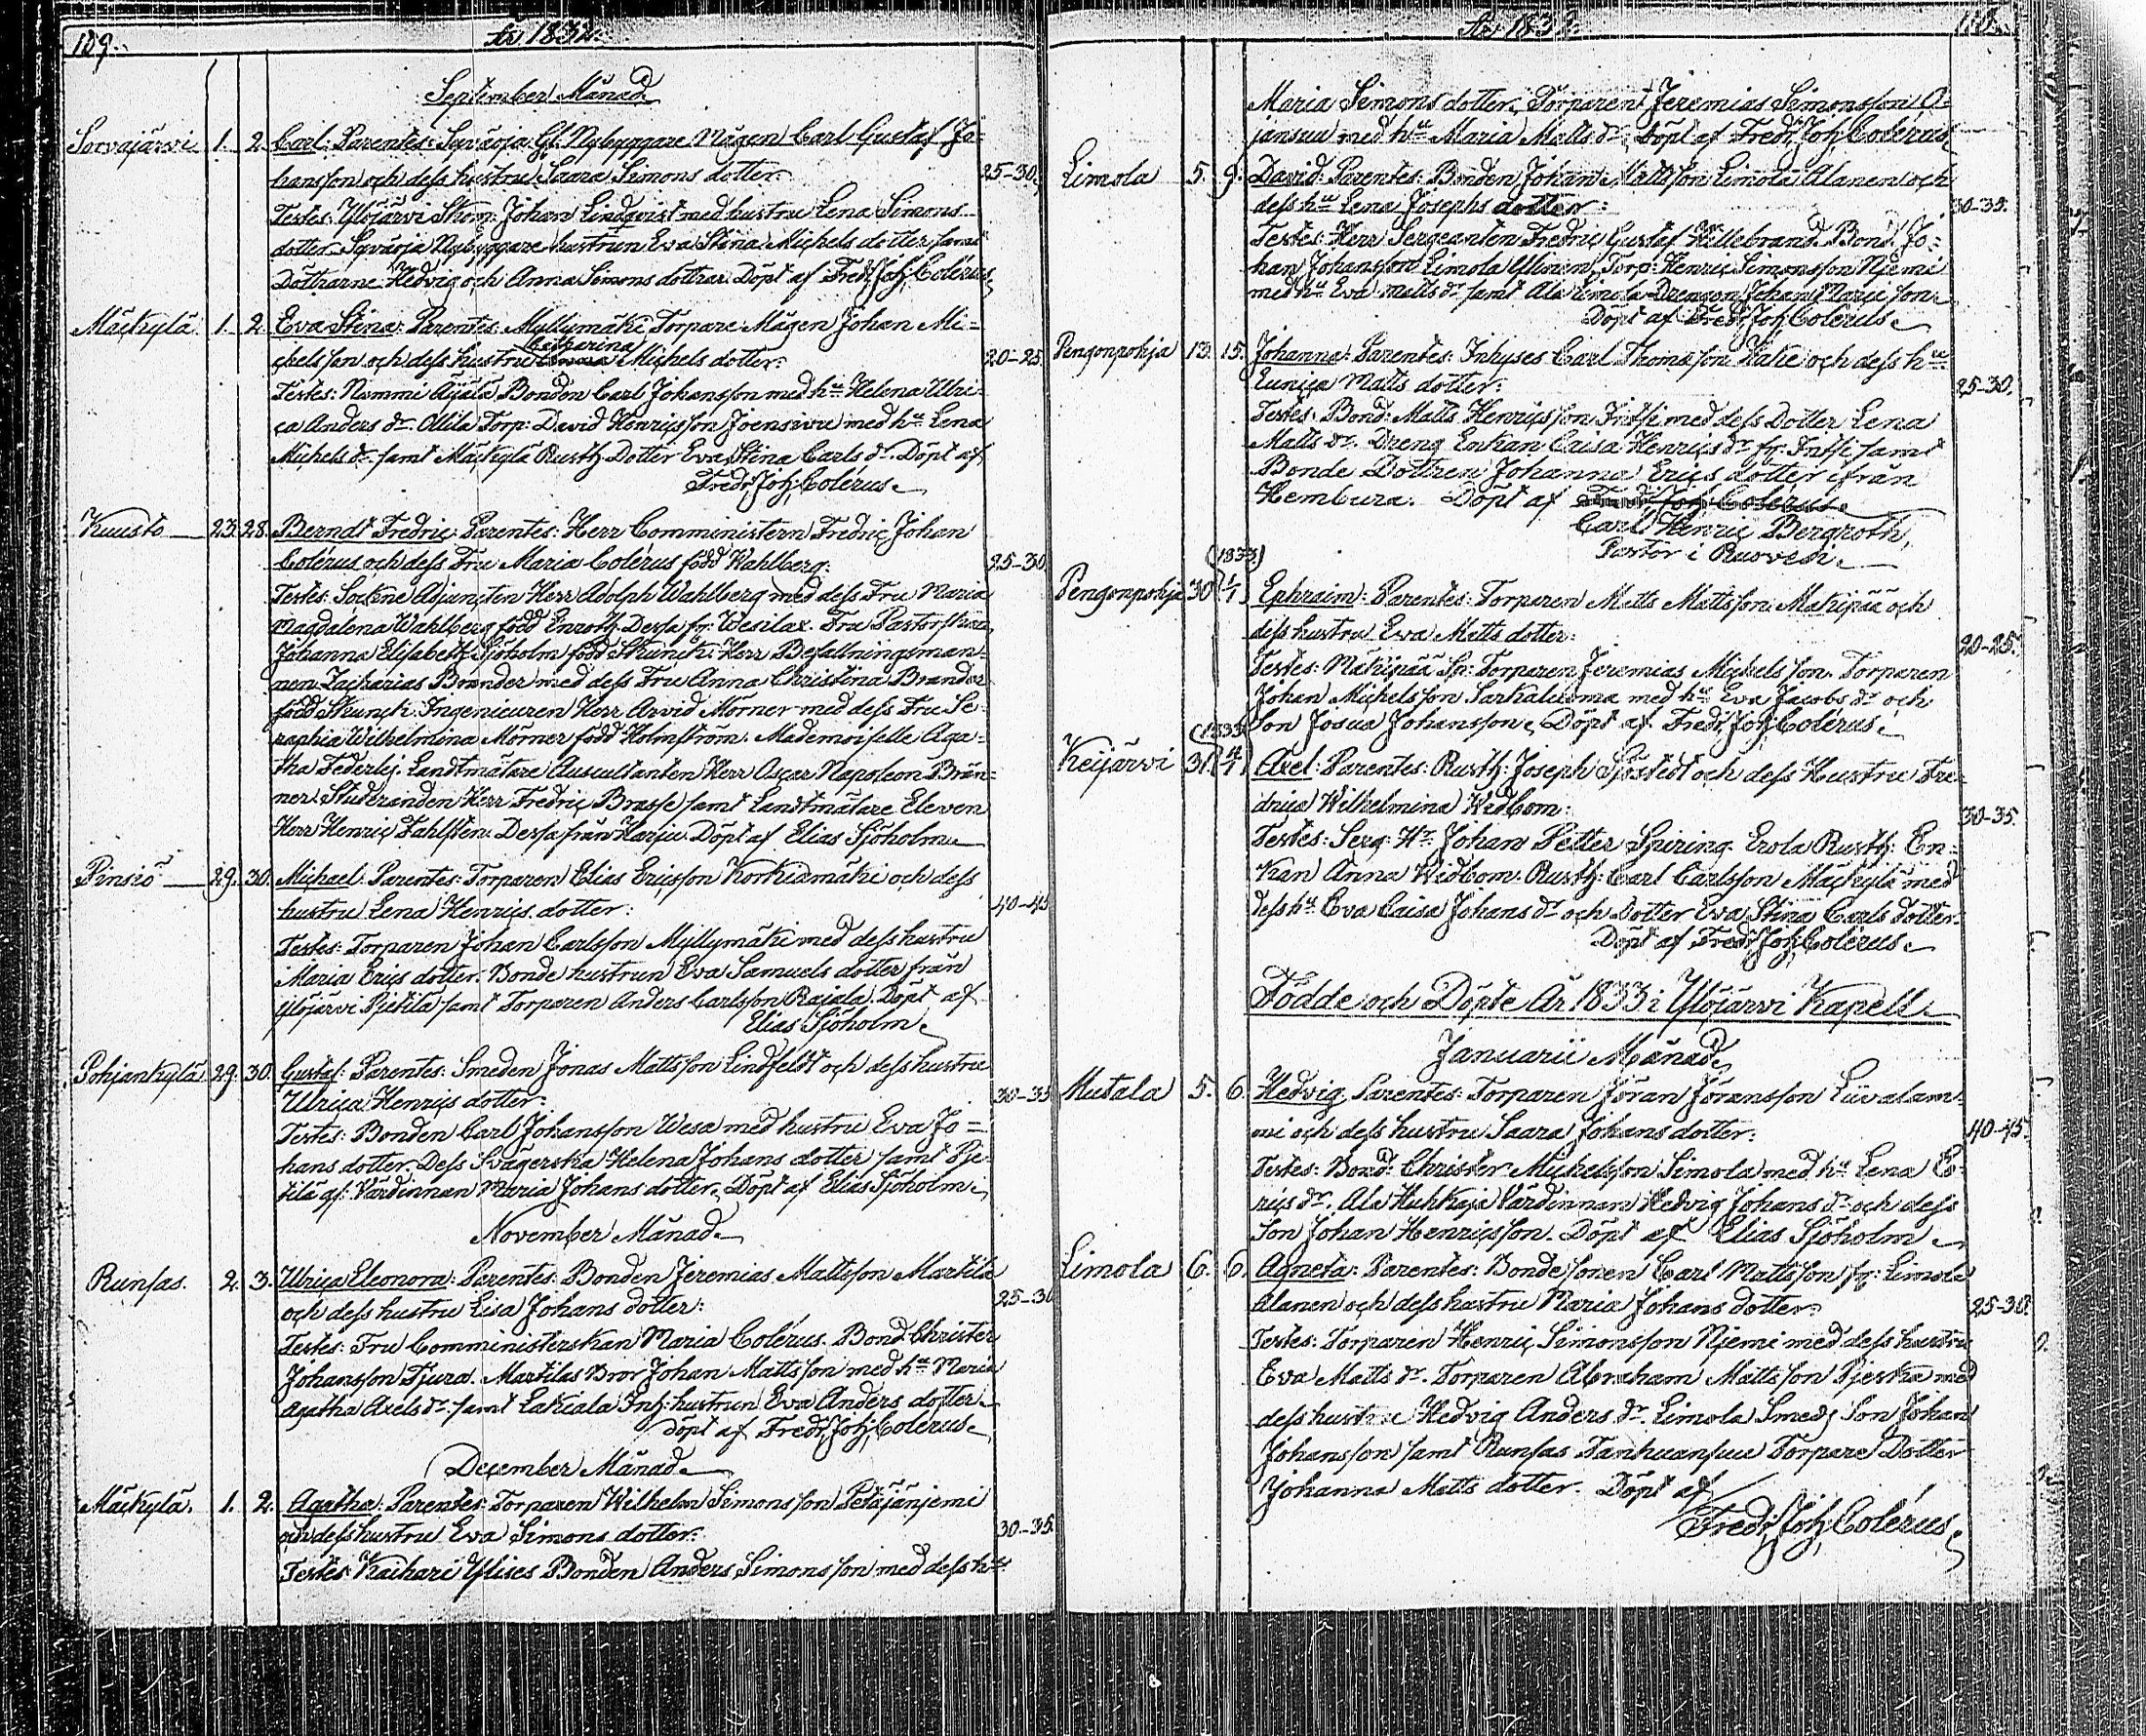 109.
År 1832.
September Månad.
Sorvajärvi 1. 2. Carl: Parentes: Nybyggare Mågen Carl Gustaf Jo=
hansson och dess hustru Saara Simons dotter. 25-30.
Testes: Ylöjärvi Johan Lindqvist med hustru Lena Simons
dotter. Nybyggare hustrun Eva Stina Michels dotter samt
Döttrarne Hedvig och Anna Simons döttrar. Döpt af Fredr: Joh: Colérus.
Mäckylä. 1. 2. Eva Stina: Parentes: Myllymäki Torpare Mågen Johan Mi=
chelsson och dess hustru Catharina Michels dotter: 20-25.
Testes: Nummi Äijälä Bonden Carl Johansson med hu Helena Ulri=
ca Anders dr. Ollila Torp: David Henricsson Joensivu med hu Lena
Michels dr. samt Mäckylä Rusth: Dotter Eva Stina Carls dr. Döpt af
Fredr: Joh: Colérus.
Kuusto 23. 28. Berndt Fredric: Parentes: Herr Comministern Fredric Johan
Colérus och dess Fru Maria Colérus född Wahlberg: 25-30.
Testes: Sockne Adjuncten Herr Adolph Wahlberg med dess Fru Maria
Magdalena Wahlberg född Enroth. Dessa fr: Wesilax. Fru Pastorskan
Johanna Elisabeth Sjöholm född Skunck. Herr Befallningsman=
nen Zacharias Brander med dess Fru Anna Christina Brander
född Skunck. Ingenieuren Herr Arvid Mörner med dess Fru Se=
raphia Wilhelmina Mörner född Holmström. Mademoiselle Aga=
tha Federley. Landtmätare Auscultanten Herr Oscar Napoleon Brun=
ner. Studeranden Herr Fredric Brasse samt Landtmätare Eleven
Herr Henric Fahlsten. Dessa från Harju. Döpt af Elias Sjöholm.
Pinsiö 29. 30. Michael: Parentes: Torparen Elias Ericsson Korkiamäki och dess
hustru Lena Henrics dotter: 40-45
Testes: Torparen Johan Carlsson Myllymäki med dess hustru
Maria Erics dotter. Bonde hustrun Eva Samuels dotter från
Ylöjärvi Pjetilä samt Torparen Anders Carlsson Rajala. Döpt af
Elias Sjöholm.
Pohjankylä 29. 30. Gustaf: Parentes: Smeden Jonas Mattsson Lindfeldt och dess hustru
Ulrica Henrics dotter: 30-35
Testes: Bonden Carl Johansson Wesa med hustru Eva Jo=
hans dotter. Dess Svägerska Helena Johans dotter samt Pje=
tilä gl: Värdinnan Maria Johans dotter. Döpt af Elias Sjöholm.
November Månad.
Runsas. 2. 3. Ulrica Eleonora: Parentes: Bonden Jeremias Mattsson Martila
och dess hustru Lisa Johans dotter: 25-30
Testes: Fru Comministerskan Maria Colérus. Bond: Christer
Johansson Tjura. Martilas Bror Johan Mattsson med hu Maria
Agatha Axels dr. samt Lakiala Inh: hustrun Eva Anders dotter.
Döpt af Fredr: Joh: Colérus.
December Månad.
Mäckylä. 1. 2. Agatha: Parentes: Torparen Wilhelm Simonsson Petäjänjemi
och dess hustru Eva Simons dotter: 30-35.
Testes: Kaihari Ylises Bonden Anders Simonsson med dess hu
År 1832.
110.
Maria Simons dotter. Torparen Jeremias Simonsson O=
jansuu med hu Maria Matts dr. Döpt af Fredr: Joh: Colérus.
Limola 5. 9. David: Parentes: Bonden Johan Mattsson Limola Alanen och
dess hu Lena Josephs dotter: 30-35.
Testes: Herr Sergeanten Fredric Gustaf Hillebrand. Bond: Jo=
han Johansson Limola Ylinen. Torp: Henric Simonsson Njemi
med hu Eva Matts dr samt Ala Limola Drengen Johan Mariæson.
Döpt af Fredr: Joh: Colérus.
Pengonpohja 13. 15. Johanna: Parentes: Inhyses Carl Thomasson Hake och dess hu
Eunica Matts dotter: 25-30.
Testes: Bond: Matts Henricsson Intti med dess Dotter Lena
Matts dr. Dreng Enkan Caisa Henrics dr. fr: Intti samt
Bonde Dottren Johanna Erics dotter ifrån
Hembura. Döpt af Fredr: Joh: Colérus.
Carl Henric Bergroth,
Pastor i Ruovesi.
(1833)
Pengonpohja 30. 1/1 Ephraim: Parentes: Torparen Matts Mattsson Mäkipää och
dess hustru Eva Matts dotter: 20-25.
Testes: Mäkipää Torparen Jeremias Michelsson. Torparen
Johan Michelsson Sarkaluoma med hu Eva Jacobs dr och
Son Josua Johansson. Döpt af Fredr: Joh: Colérus.
(1833)
Keijärvi 31. Axel: Parentes: Rusth: Joseph Sjöstedt och dess Hustru Fre=
drica Wilhelmina Widbom: 30-35.
Testes: Serg: Hr Johan Petter Spiring. Erola Rusth: En=
kan Anna Widbom. Rusth: Carl Carlsson Mäckylä med
dess hu Eva Caisa Johans dr och dotter Eva Stina Carls dotter.
Döpt af Fredr: Joh: Colérus.
Födde och Döpte År 1833 i Ylöjärvi Kapell.
Januarii Månad.
Mutala 5. 6. Hedvig: Parentes: Torparen Jöran Jöransson Liuvalam=
mi och dess hustru Saara Johans dotter: 40-45.
Testes: Bond: Christer Michelsson Simola med hu Lena E=
rics dr. Ala Huhkaja Värdinnan Hedvig Johans dr och dess
Son Johan Henricsson. Döpt af Elias Sjöholm.
Limola 6. 6. Agneta: Parentes: Bondesonen Carl Mattsson fr: Limola
Alanen och dess hustru Maria Johans dotter: 25-30.
Testes: Torparen Henric Simonsson Njemi med dess hustru
Eva Matts dr. Torparen Abraham Mattsson Pjeska med
dess hustru Hedvig Anders dr. Limola Smeds Son Johan
Johansson samt Runsas Tanhuansuu Torpare Dotter
Johanna Matts dotter. Döpt af
Fredr: Joh: Colérus.